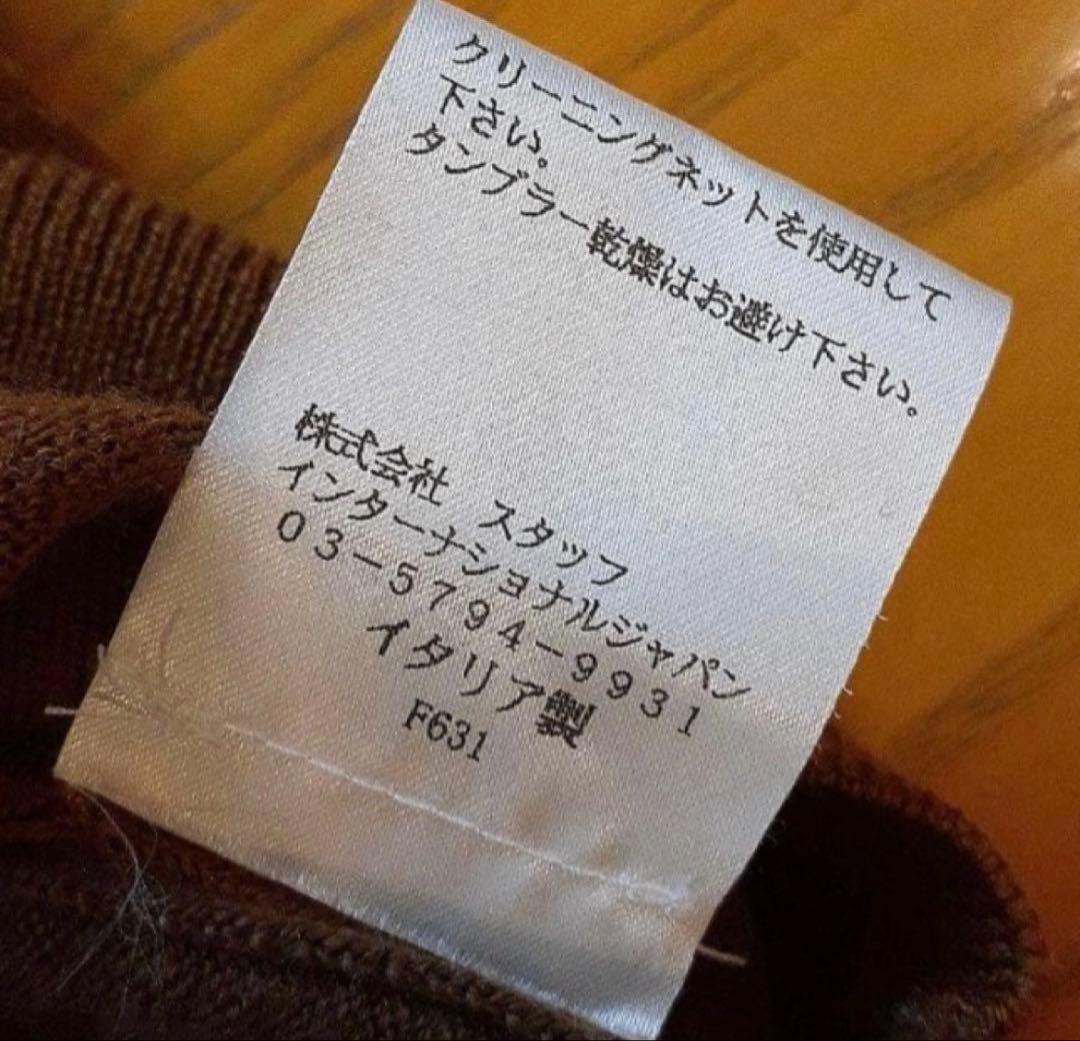 クリーニングネットを使用して
下さい。
タンブラー乾燥はお避け下さい。
株式会社 スタッフ
インターナショナルジャパン
03-5794-9931
イタリア製
F631